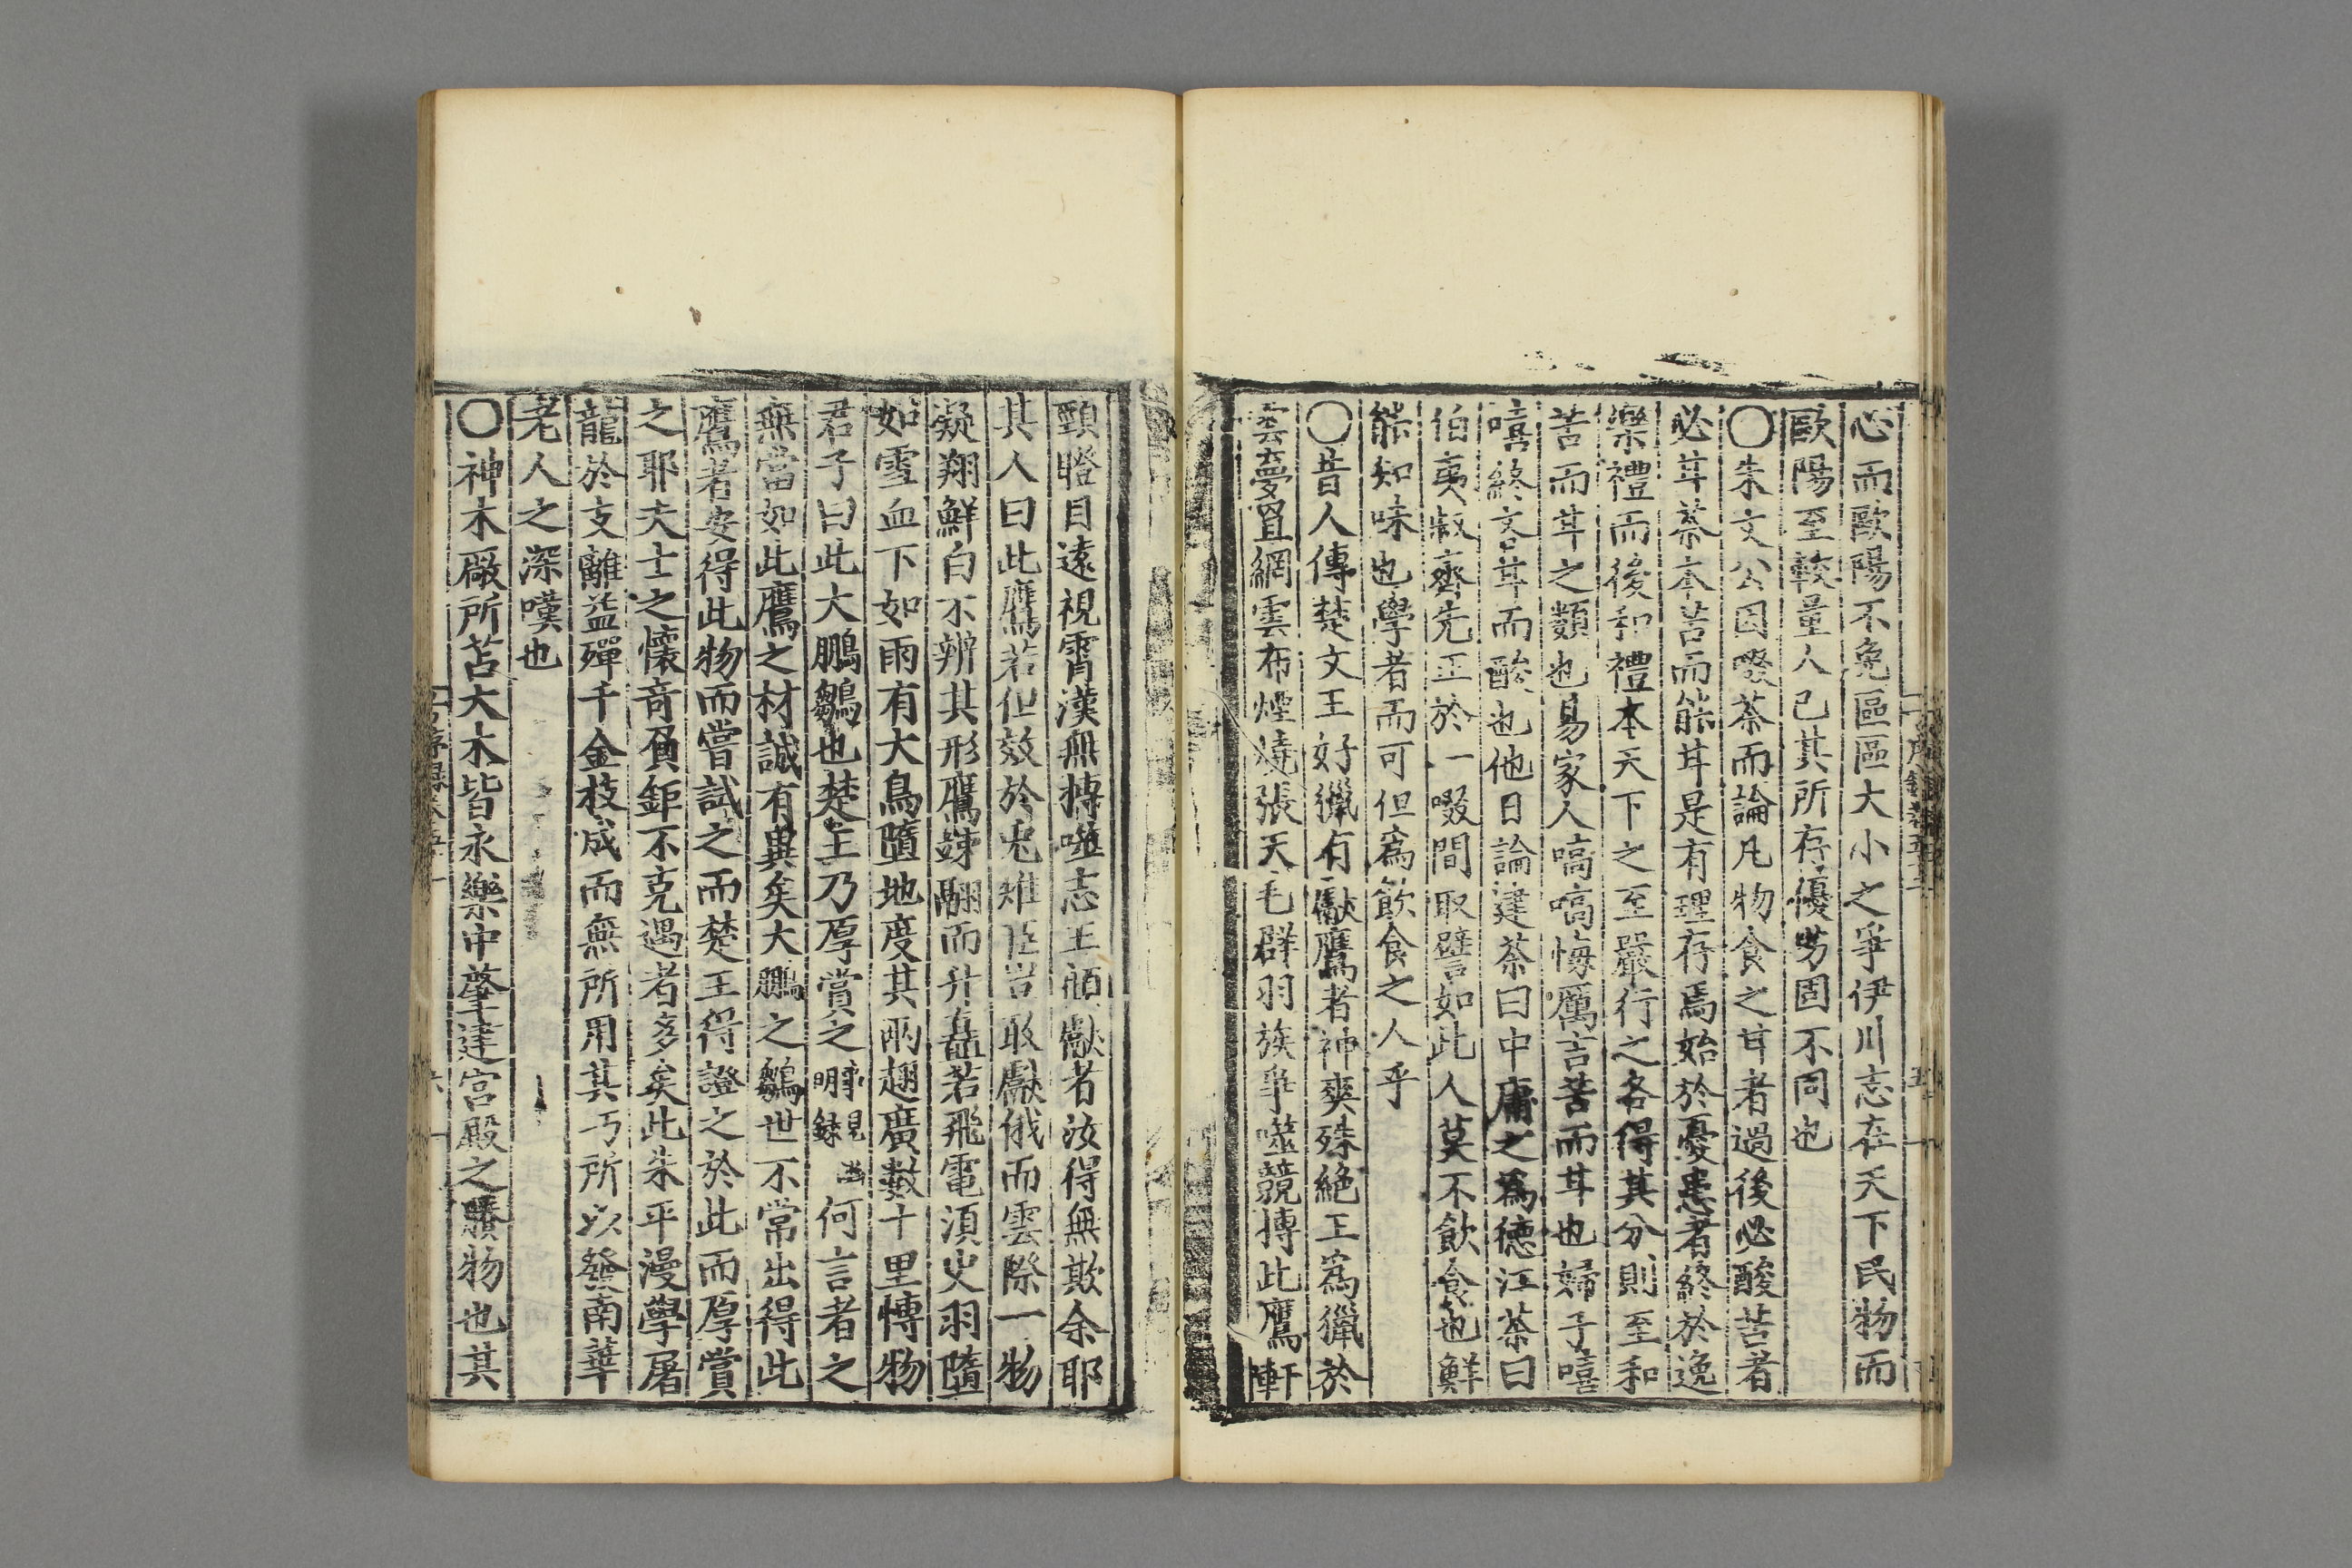 心而歐陽不免區區大小之爭伊川志在天下民物而
歐陽至較量人己其所存優劣固不同也
〇朱文公因啜茶而論凡物食之甘者過後必酸苦者
必甘茶本苦而能甘是有理存焉始於憂患者終於逸
樂禮而後和禮本天下之至嚴行之各得其分則至和
苦而甘之類也易家人嗃嗃悔厲言苦而甘也婦子嘻
嘻終文言甘而酸也他日論建茶曰中庸之爲德江茶曰
伯夷叔齊先正於一啜間取譬如此人莫不飲食也鮮
能知味也學者而可但爲飲食之人乎
〇昔人傳楚文王好獵有獻鷹者神爽殊絶王爲獵於
雲夢罝網雲布煙燒張天毛群羽族爭噬競搏此鷹軒
頸瞪目遠視霄漢無搏噬志王顧獻者汝得無欺余耶
其人曰此鷹若但效於兎雉臣豈敢獻俄而雲際一物
凝翔鮮白不辨其形鷹竦翮而升矗若飛電湏㬰羽墮
如雪血下如雨有大鳥墮地度其兩翅廣數十里博物
君子曰此大鵬鶵也楚王乃厚賞之事見 明錄 何言者之
無當如此鷹之材誠有異矣大鵬之鶵世不常出得此
鷹者安得此物而嘗試之而楚王得證之於此而厚賞
之耶夫士之懷竒負鉅不克遇者多矣此朱平漫學屠
龍於支離益殫千金枝成而無所用其巧所以發南華
老人之深嘆也
〇神木廠所苫大木皆永樂中肇建宮殿之賸物也其